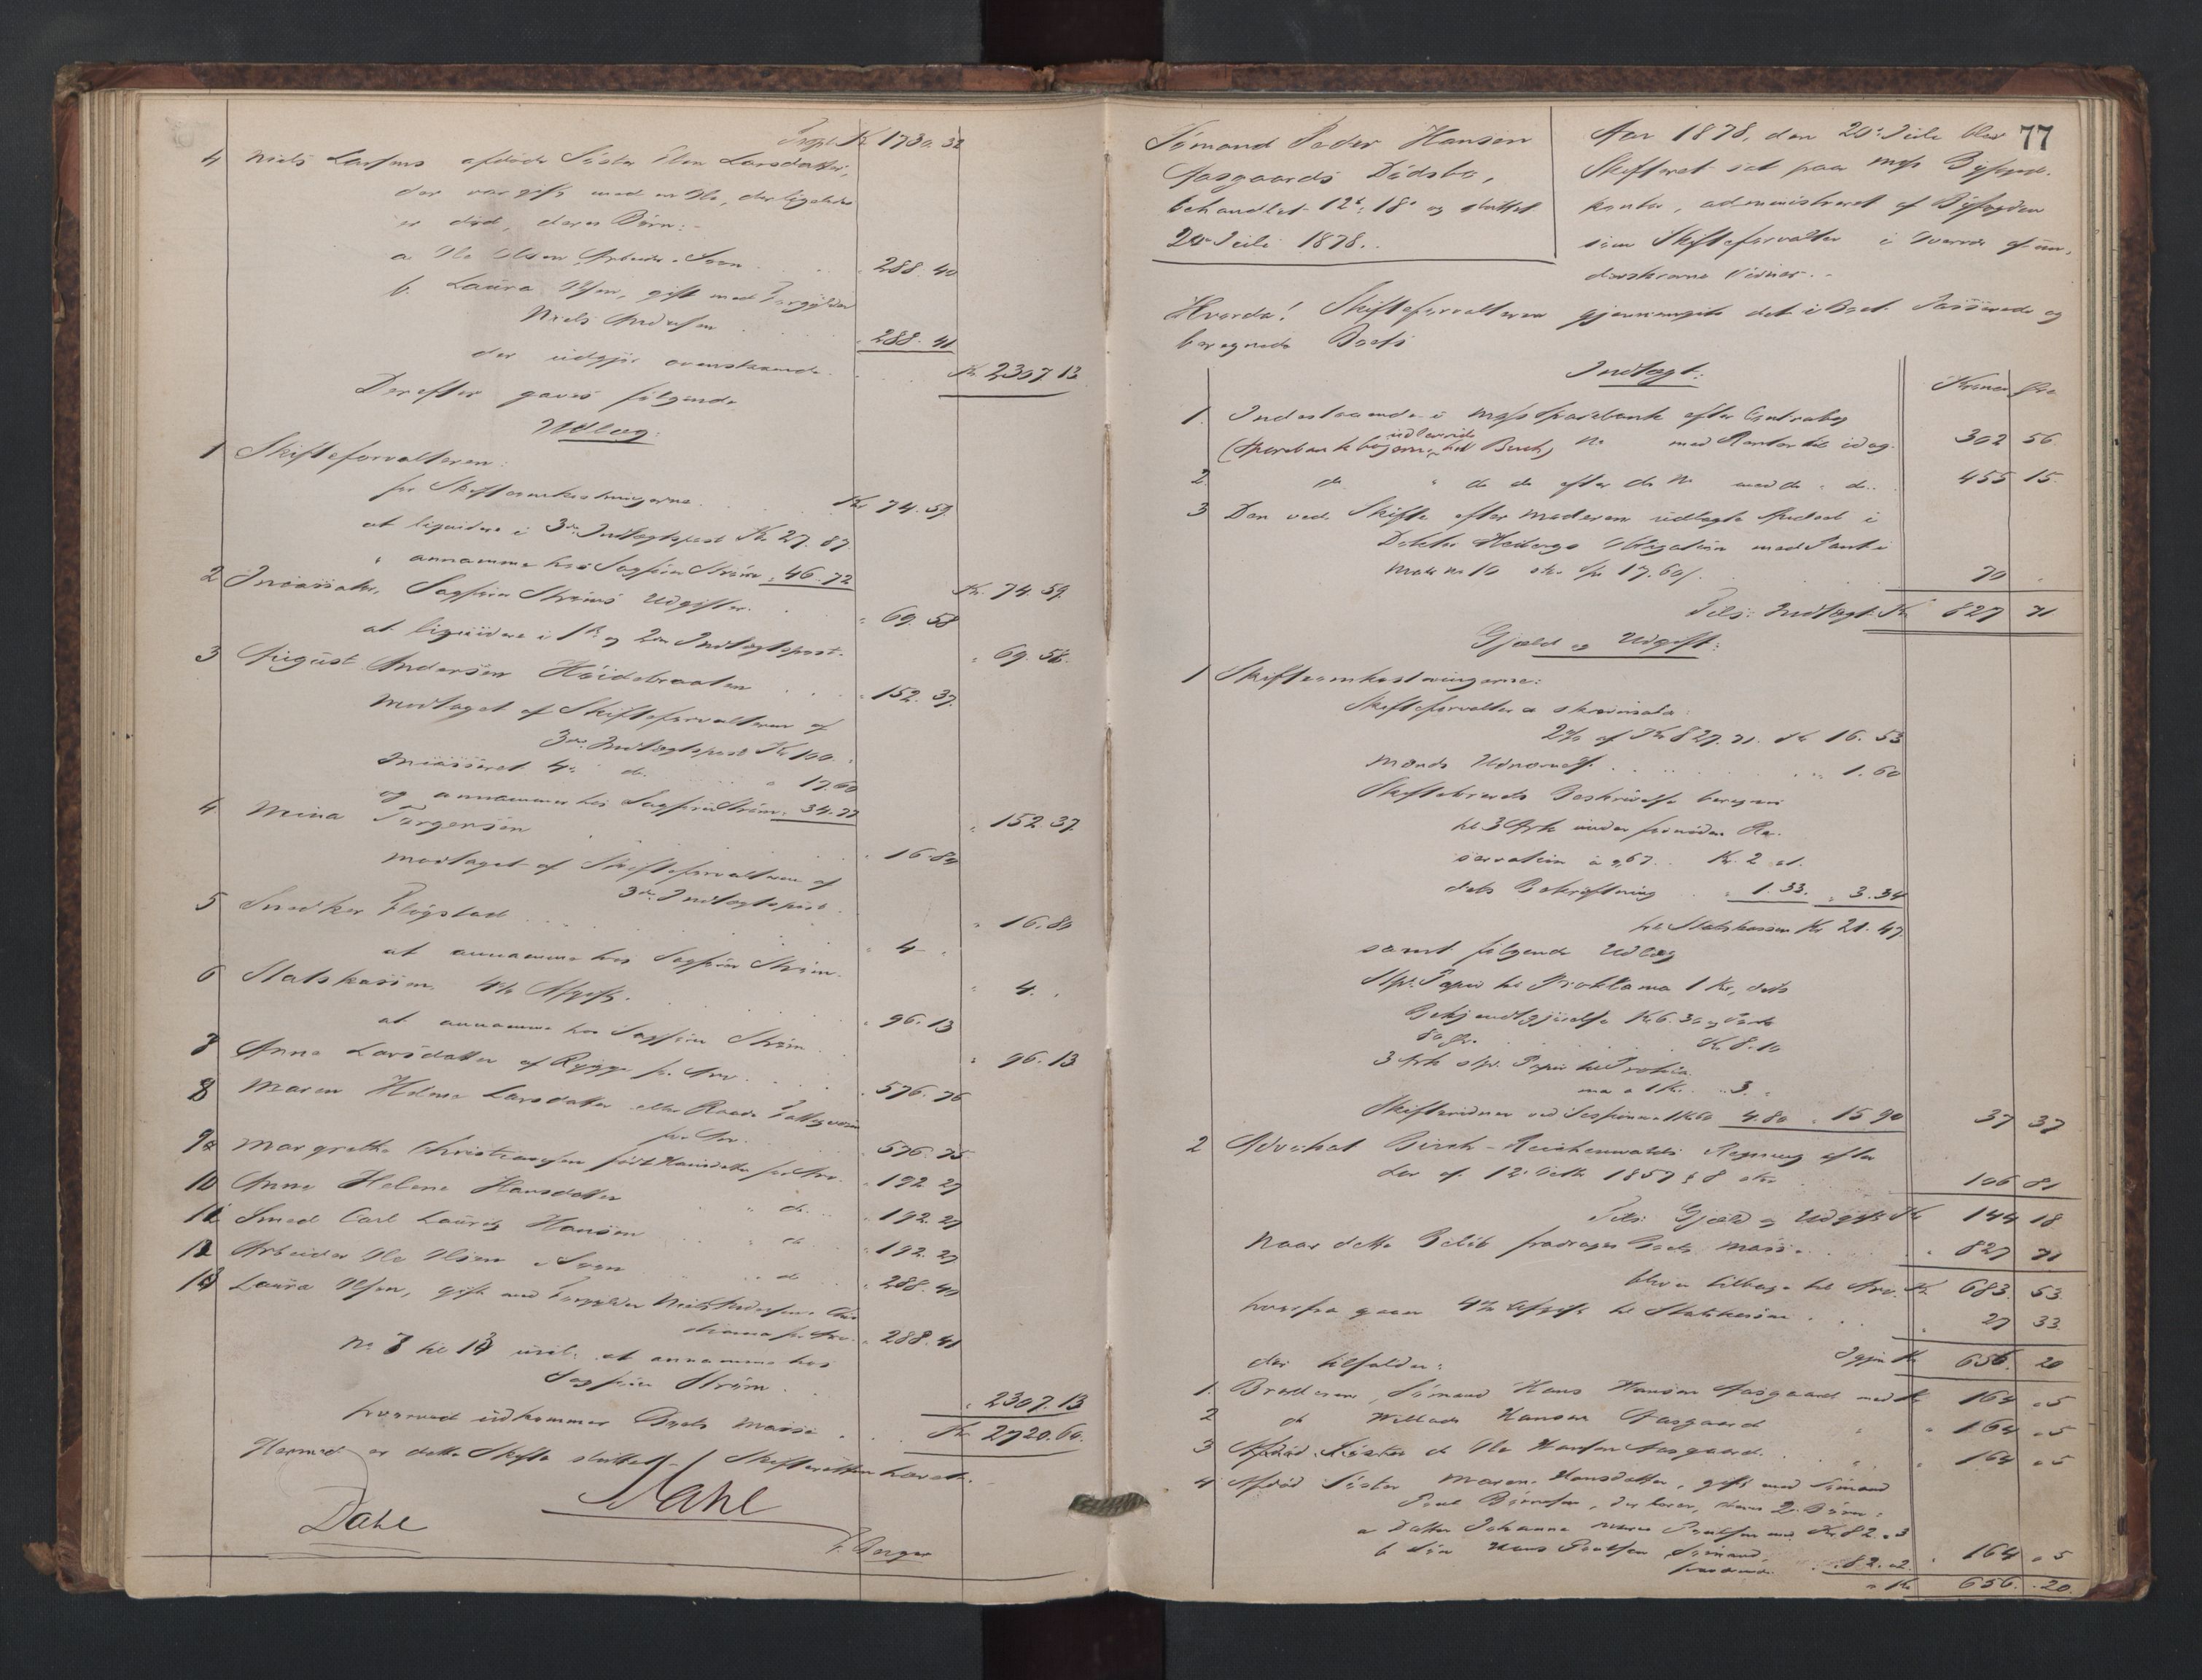 Transp. Kr 1730.32
4 Niels Larsens afdøde Søster Elen Larsdatter,
der var gift med en Ole, der ligeledes
er død, deres Børn:
a. Ole Olsen Arbeider Soon 288.40
b. Laura Olsen, gift med
Niels Andersen 288.41
der udgjør ovenstaaende Kr. 2307.13
Derefter gaves følgende
Udlæg:
1 Skifteforvalteren:
for Skifteomkostningerne Kr. 74.59.
at liquidere i 3die Indtægtspost Kr. 27.87
" annamme hos Sagfører Strøm " 46.72
Kr. 74.59.
2 Incassator, Sagfører Strøms Udgifter. " 69.58
at liquidere i 1ste og 2den Indtægtspost.
" 69.58.
3 August Andersen Høidebraaten " 152.37.
modtaget af Skifteforvalteren af
3die Indtægtspost Kr. 100.
4de do. " 17.60
og annammes hos Sagfører Strøm 34.77
" 152.37.
4. Mina Jørgensen " 16.80
modtaget af Skifteforvalteren af
3die Indtægtspost.
" 16.80
5 Snedker Fløgstad " 4 "
at annamme hos Sagfører Strøm.
" 4. "
6 Statskassen, 4% Afgift. " 96.13
at annamme hos Sagfører Strøm
" 96.13
7 Anne Larsdatter af Rygge for Arv. " 576.76
8 Maren Helene Larsdatter eller Raade
for Arv. " 576.75
9 Margrethe Christiansen født Hansdatter for Arv. " 192.27
10 Anne Helene Hansdatter " do. " 192.27
11 Smed Carl Lauritz Hansen " do " 192.27
12 Arbeider Ole Olsen Soon " do " 288.40
13 Laura Olsen, gift med Niels Andersen
for Arv. " 288.41
No 7 til 13 incl. at annamme hos
Sagfører Strøm.
" 2307.13
hvorved udkommer Boets Masse Kr. 2720.60.
Hermed er dette Skifte sluttet. Skifteretten hævet.
Dahl
Dahl

77
Sømand Peder Hansen
Aasgaards Dødsbo,
behandlet 12te, 18de og sluttet
20de Juli 1878.
Aar 1878, den 20de Juli blev
Skifteret sat paa Moss Byfoged-
kontor, administreret af Byfogden
som Skifteforvalter i Overvær af un-
derskrevne Vidner.
Hvorda! Skifteforvalteren gjennemgik det i Boet Passerede og
beregnede Boets
Indtægt:
Kroner Øre
1. Indestaaende i Moss Sparebank efter Contrabog
(Sparebankbogen udleveret til Birch) No med Renter til idag. 302 56
2 do. " do do efter do No med do " do. 455 15.
3 Den ved Skifte efter Moderen udlagte Andeel i
Doktor Heibergs Obligation med Pant i
Matr. No 10 str. Sp. 17.60/ 70 "
Tils: Indtægt Kr 827 71
Gjæld og Udgift:
1 Skifteomkostningerne:
Skifteforvalter a skriversalær:
2% af Kr 827.71. Kr 16.53
Mænds Udnævnelse " 1.60
Skiftebrevets Beskrivelse beregnes
til 3 Ark under fornøden Re-
servation à 0,67 Kr. 2.01.
dets Bekræftning " 1.33. " 3.34
til Statskassen Kr 21.47
samt følgende Udlæg
Stpl. Papir til Proklama 1 Kr, dets
Bekjendtgjørelse Kr 6.30 og Porto
80 Øre. Kr. 8.10
3 Ark stpl. Papir til
à 1 Kr. " 3. "
Skiftevidner ved Sessionerne 1 Kr 60 4.80 " 15.90 37 37
2 Advokat Birch-Reichenwalds Regning efter
Lov af 12te Oktb 1857 § 8 106 81
Tils: Gjæld og Udgift Kr 144 18
Naar dette Beløb fradrages Boets Masse " 827 71
bliver tilbage til Arv. Kr. 683. 53.
hvorfra gaar 4% Afgift til Statskassen " 27 33.
Igjen Kr 656. 20
der tilfalder:
1. Broderen, Sømand Hans Hansen Aasgaard med Kr 164 " 5
2 do Willads Hansen Aasgaard " " 164 " 5
3 do Ole Hansen Aasgaard. " 164 " 5
4 Afdød Søster Maren Hansdatter, gift med Sømand
Poul Børresen, der lever, deres 2 Børn:
a Datter Johanne Marie Poulsen med Kr 82.03
b Søn Hans Poulsen Sømand
" 82.02 " 164 " 5
Kr 656. 20.